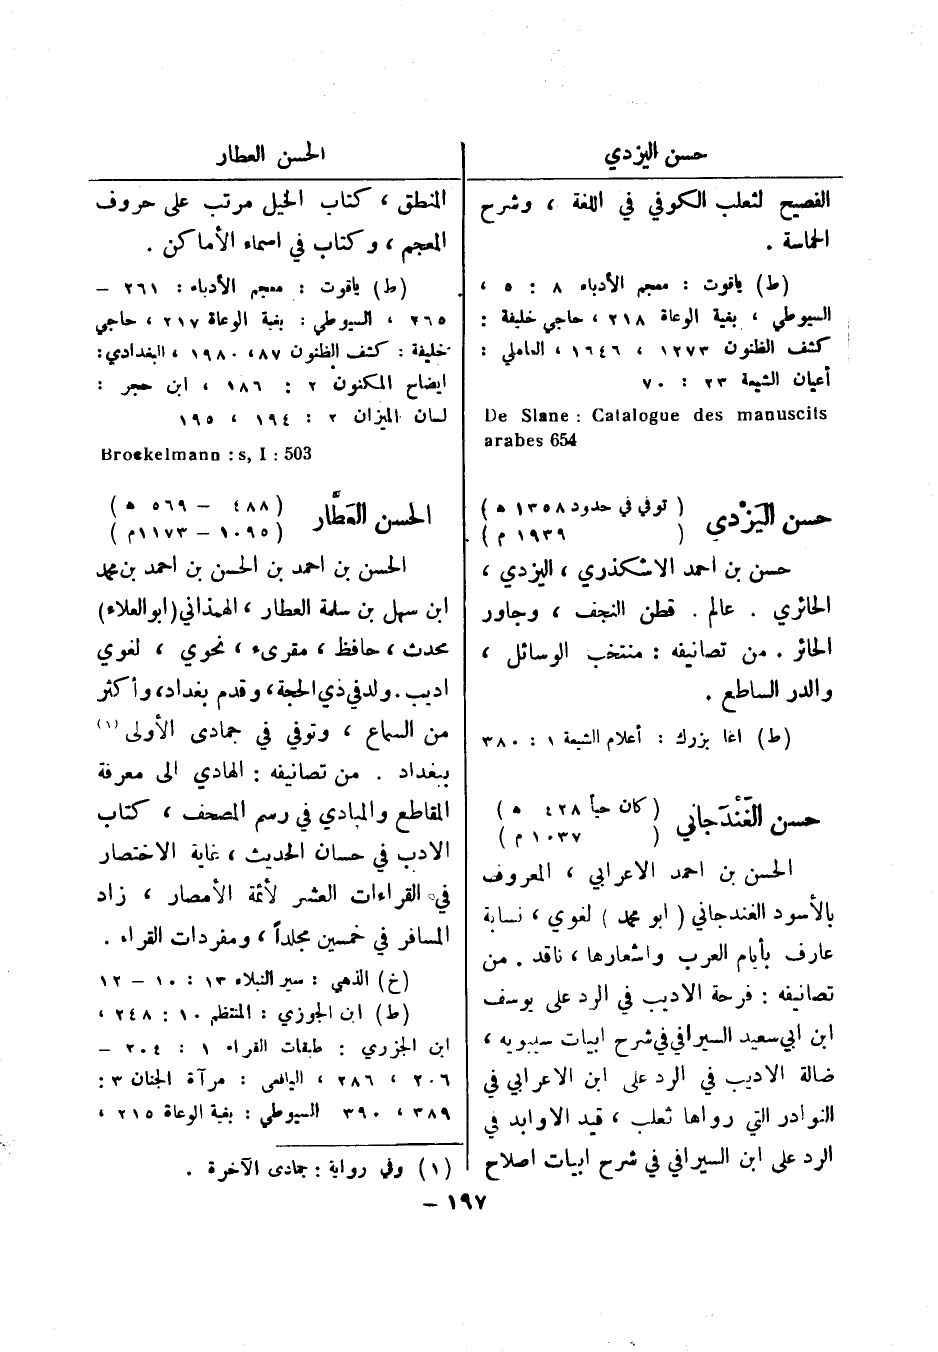 حسن اليزدي
الفصيح لثعلب الكوفي في اللغة ، وشرح
الحماسة .
(ط) ياقوت : معجم الأدباء ٨ : ٥ ،
السيوطي ، بغية الوعاة ٢١٨ ، حاجي خليفة :
كشف الظنون ١٢٧٣ ، ١٦٤٦ ، العاملي :
أعيان الشيعة ٢٣ : ٧٠
De Slane : Catalogue des manuscits
arabes 654
حسن اليَزْدي ( توفي في حدود ١٣٥٨ ه )
( ١٩٣٩ م )
حسن بن احمد الاشكذري ، اليزدي ،
الحائري . عالم . قطن النجف ، وجاور
الحائر . من تصانيفه : منتخب الوسائل ،
والدر الساطع .
(ط) اغا بزرك : أعلام الشيعة ١ : ٣٨٠
حسن الغَنْدَجاني ( كان حياً ٤٢٨ ه )
( ١٠٣٧ م )
الحسن بن احمد الاعرابي ، المعروف
بالأسود الغندجاني ( ابو محمد ) لغوي ، نسابة
عارف بأيام العرب واشعارها ، ناقد . من
تصانيفه : فرحة الاديب في الرد على يوسف
ابن ابي سعيد السيرافي في شرح ابيات سيبويه ،
ضالة الاديب في الرد على ابن الاعرابي في
النوادر التي رواها ثعلب ، قيد الاوابد في
الرد على ابن السيرافي في شرح ابيات اصلاح
الحسن العطار
المنطق ، كتاب الخيل مرتب على حروف
المعجم ، وكتاب في اسماء الأماكن .
(ط) ياقوت : معجم الأدباء : ٢٦١ –
٢٦٥ ، السيوطي : بغية الوعاة ٢١٧ ، حاجي
خليفة : كشف الظنون ٨٧ ، ١٩٨٠ ، البغدادي :
ايضاح المكنون ٢ : ١٨٦ ، ابن حجر :
لسان الميزان ٢ : ١٩٤ ، ١٩٥
Brockelmann : s, I : 503
الحسن العَطَّار ( ٤٨٨ – ٥٦٩ ه )
( ١٠٩٥ – ١١٧٣م )
الحسن بن احمد بن الحسن بن احمد بن محمد
ابن سهل بن سلمة العطار ، الهمذاني (ابو العلاء)
محدث ، حافظ ، مقرىء ، نحوي ، لغوي
اديب . ولد في ذي الحجة ، وقدم بغداد ، وأكثر
من السماع ، وتوفي في جمادى الأولى (١)
ببغداد . من تصانيفه : الهادي الى معرفة
المقاطع والمبادي في رسم المصحف ، كتاب
الادب في حسان الحديث ، غاية الاختصار
في القراءات العشر لأئمة الأمصار ، زاد
المسافر في خمسين مجلداً ، ومفردات القراء .
(خ) الذهبي : سير النبلاء ١٣ : ١٠ – ١٢
(ط) ابن الجوزي : المنتظم ١٠ : ٢٤٨ ،
ابن الجزري : طبقات القراء ١ : ٢٠٤ –
٢٠٦ ، ٢٨٦ ، اليافعي : مرآة الجنان ٣ :
٣٨٩ ، ٣٩٠ السيوطي : بغية الوعاة ٢١٥ ،
(١) وفي رواية : جمادى الآخرة .
١٩٧ –